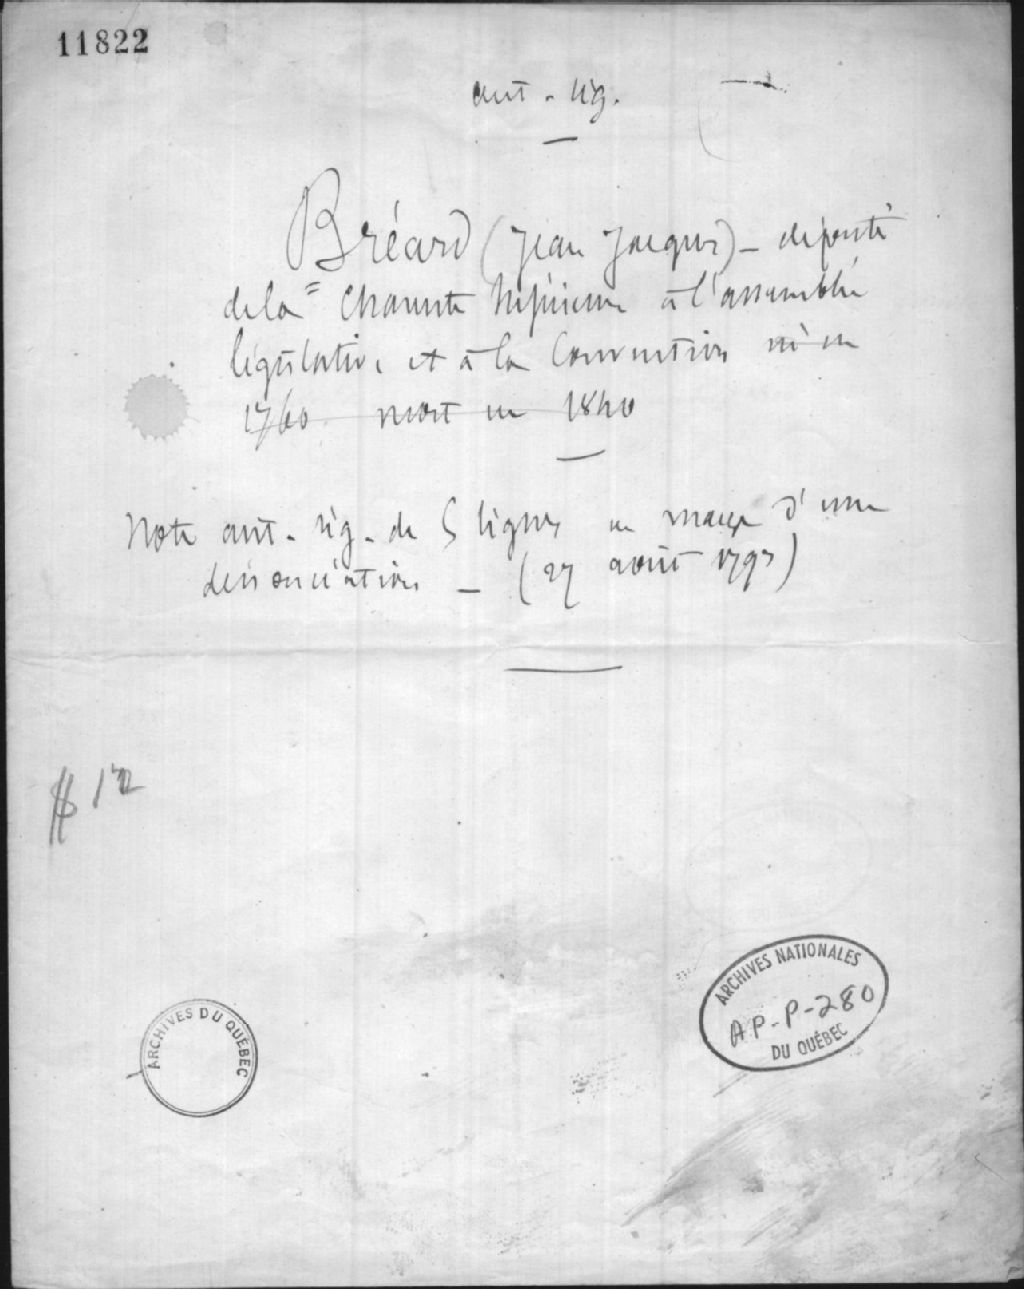 11822
aut. sig.
Bréard (Jean Jacques) - député
de la Charente Inférieure à l'assemblée
législative et à la Convention né en
1760 mort en 1840
Note aut. sig. de 5 lignes en marge d'une
dénonciation - (27 août 1793)
$ 12
ARCHIVES NATIONALES
AP-P-280
DU QUÉBEC
ARCHIVES DU QUÉBEC